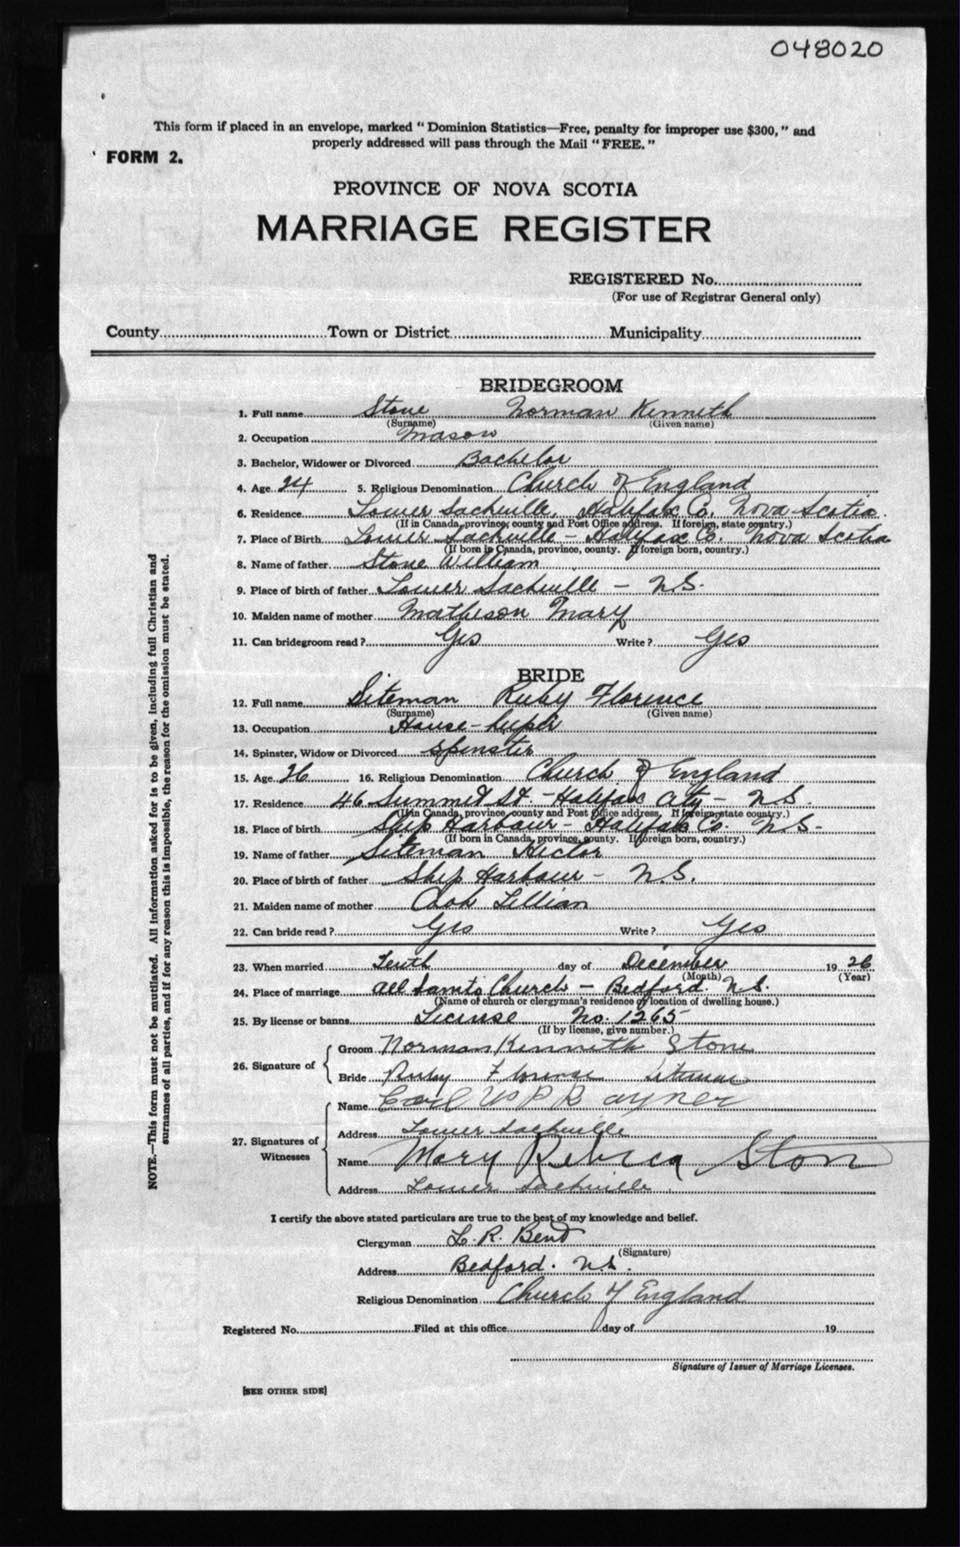 048020
This form if placed in an envelope, marked "Dominion Statistics—Free, penalty for improper use $300," and
properly addressed will pass through the Mail "FREE."
FORM 2.
PROVINCE OF NOVA SCOTIA
MARRIAGE REGISTER
REGISTERED No.
(For use of Registrar General only)
County Town or District Municipality
BRIDEGROOM
1. Full name Stone Norman Kenneth
(Surname) (Given name)
2. Occupation Mason
3. Bachelor, Widower or Divorced Bachelor
4. Age 24 5. Religious Denomination Church of England
6. Residence Lower Sackville, Halifax Co. Nova Scotia.
(If in Canada, province, county and Post Office address. If foreign, state country.)
7. Place of Birth Lower Sackville – Halifax Co. Nova Scotia
(If born in Canada, province, county. If foreign born, country.)
8. Name of father Stone William
9. Place of birth of father Lower Sackville – N.S.
10. Maiden name of mother Matheson Mary
11. Can bridegroom read? Yes Write? Yes
BRIDE
12. Full name Siteman Ruby Florence
(Surname) (Given name)
13. Occupation House-keeper
14. Spinster, Widow or Divorced Spinster
15. Age 26 16. Religious Denomination Church of England
17. Residence 46 Summit St. – Halifax City – N.S.
(If in Canada, province, county and Post Office address. If foreign, state country.)
18. Place of birth Ship Harbour – Halifax Co. N.S.
(If born in Canada, province, county. If foreign born, country.)
19. Name of father Siteman Hector
20. Place of birth of father Ship Harbour – N.S.
21. Maiden name of mother Lillian
22. Can bride read? Yes Write? Yes
23. When married Tenth day of December 1926
(Month) (Year)
24. Place of marriage All Saints Church – Bedford. N.S.
(Name of church or clergyman's residence or location of dwelling house.)
25. By license or banns License No. 1265
(If by license, give number.)
26. Signature of
Groom Norman Kenneth Stone
Bride Ruby Florence Siteman
27. Signatures of Witnesses
Name Carl Rayner
Address Lower Sackville
Name Mary Rebecca Stone
Address Lower Sackville
I certify the above stated particulars are true to the best of my knowledge and belief.
Clergyman L. R. Bent
(Signature)
Address Bedford. N.S.
Religious Denomination Church of England
Registered No. Filed at this office day of 19
Signature of Issuer of Marriage Licenses.
[SEE OTHER SIDE]
NOTE.—This form must not be mutilated. All information asked for is to be given, including full Christian and
surnames of all parties, and if for any reason this is impossible, the reason for the omission must be stated.